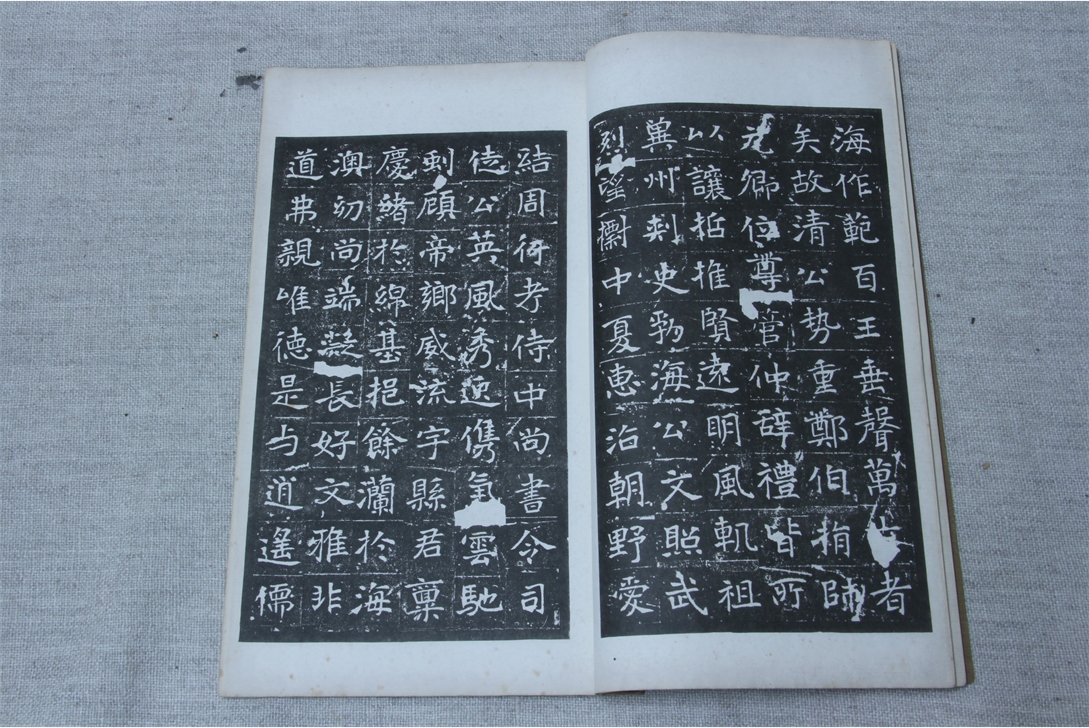 海作範百王垂聲萬古者
矣故清公势重鄭伯捐師
允卿位尊管仲辭禮皆所
以讓哲推賢遠明風軌祖
兾州刾史勃海公文照武
烈望㯹中夏惠沾朝野愛
結周行考侍中尚書令司
徒公英風秀逸儁氣雲馳
頋帝鄉威流宇縣君稟
慶緒於綿基挹餘瀾於海
澳幼尚端凝長好文雅非
道弗親唯德是与逍遙儒